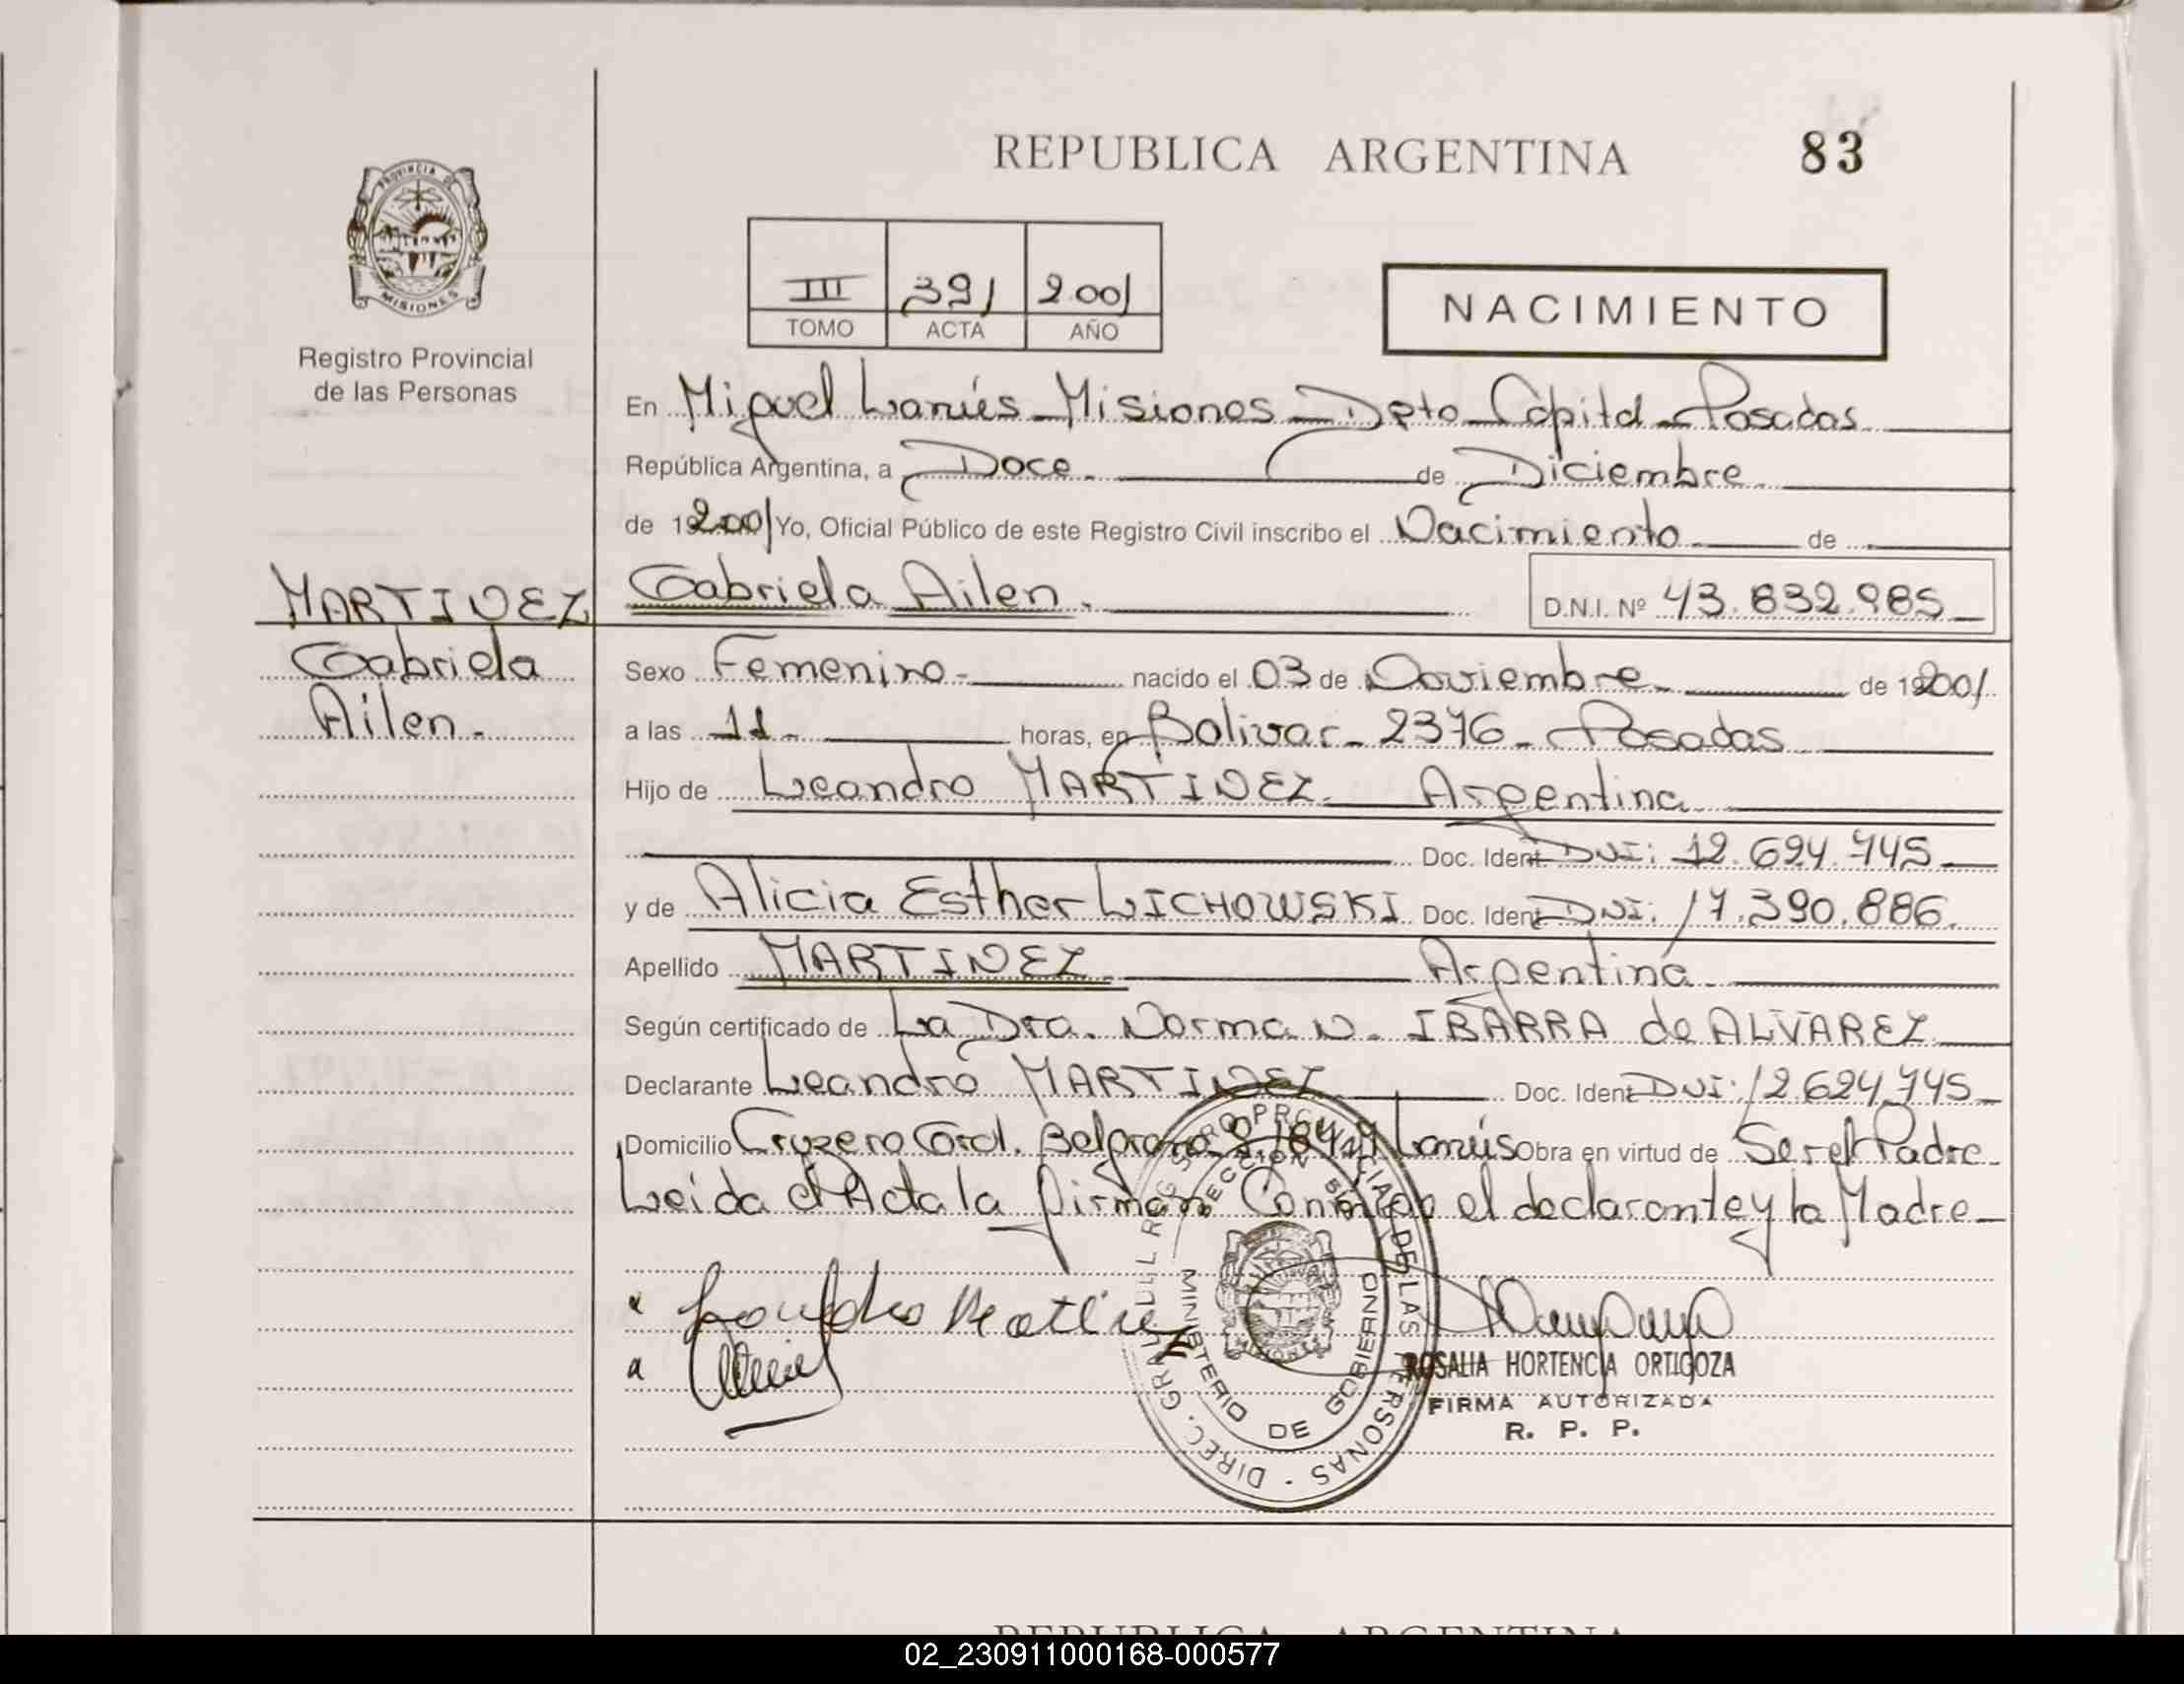 REPUBLICA ARGENTINA 83
PROVINCIA DE
MISIONES
Registro Provincial
de las Personas
III 391 2001
TOMO ACTA AÑO
NACIMIENTO
En Miguel Lanús - Misiones - Dpto Capital - Posadas
República Argentina, a Doce - de Diciembre
de 19 2001 Yo, Oficial Público de este Registro Civil inscribo el Nacimiento - de
MARTINEZ
Gabriela
Ailen -
Gabriela Ailen - D.N.I. Nº 43.832.985
Sexo Femenino - nacido el 03 de Noviembre - de 19 2001
a las 11 - horas, en Bolivar - 2376 - Posadas
Hijo de Leandro MARTINEZ - Argentina
Doc. Ident. DNI: 12.624.745
y de Alicia Esther LICHOWSKI Doc. Ident. DNI: 17.390.886.
Apellido MARTINEZ Argentina
Según certificado de La Dra. Norma N. IBARRA de ALVAREZ
Declarante Leandro MARTINEZ Doc. Ident DNI: 12624745
Domicilio Crucero Gral. Belgrano Lanús Obra en virtud de Ser el Padre
Leida el Acta la firman Conmigo el declarante y la Madre
Leandro Martinez
ROSALIA HORTENCIA ORTIGOZA
FIRMA AUTORIZADA
R. P. P.
DIREC. GRAL. DEL REGISTRO PROVINCIAL DE LAS PERSONAS
MINISTERIO DE GOBIERNO
REPUBLICA ARGENTINA
02_230911000168-000577